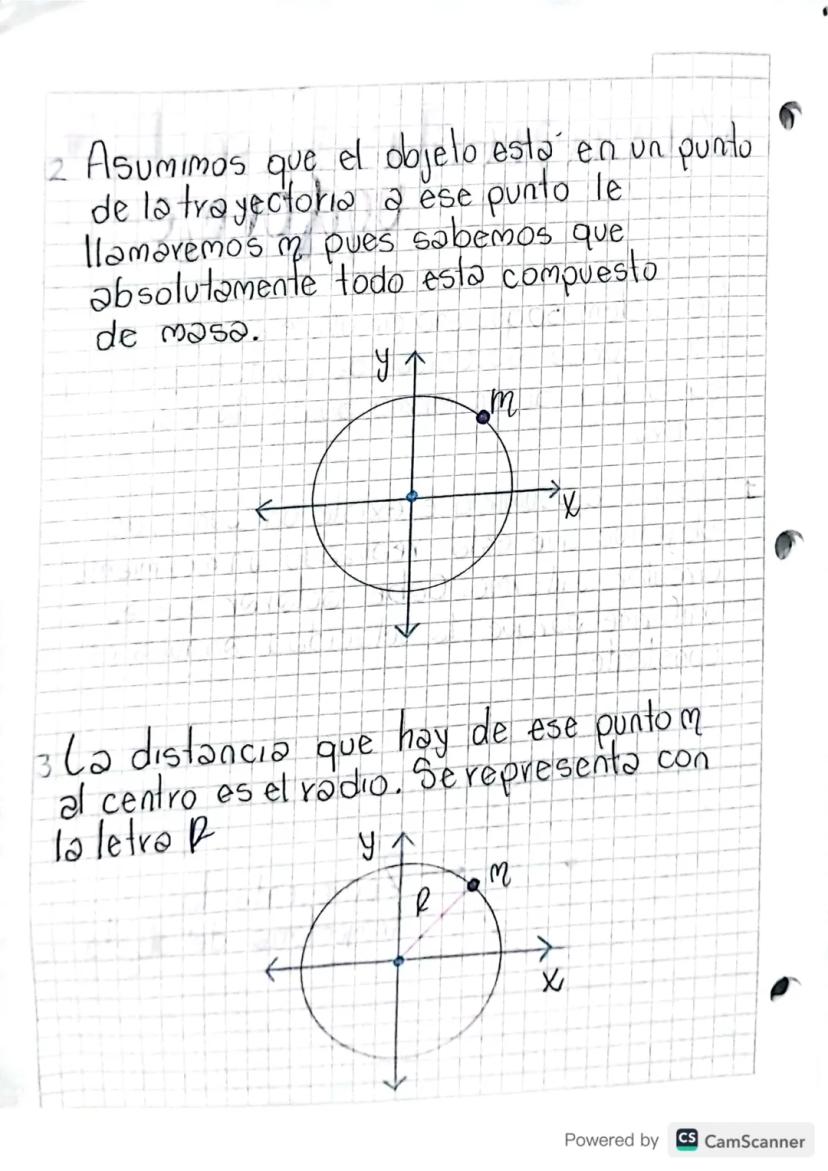 2 Asumimos que el objeto está en un punto
de la trayectoria a ese punto le
llamaremos m pues sabemos que
absolutamente todo esta compuesto
de masa.
y
m
x
3 La distancia que hay de ese punto m
al centro es el radio. Se representa con
la letra R
y
m
R
x
Powered by CS CamScanner